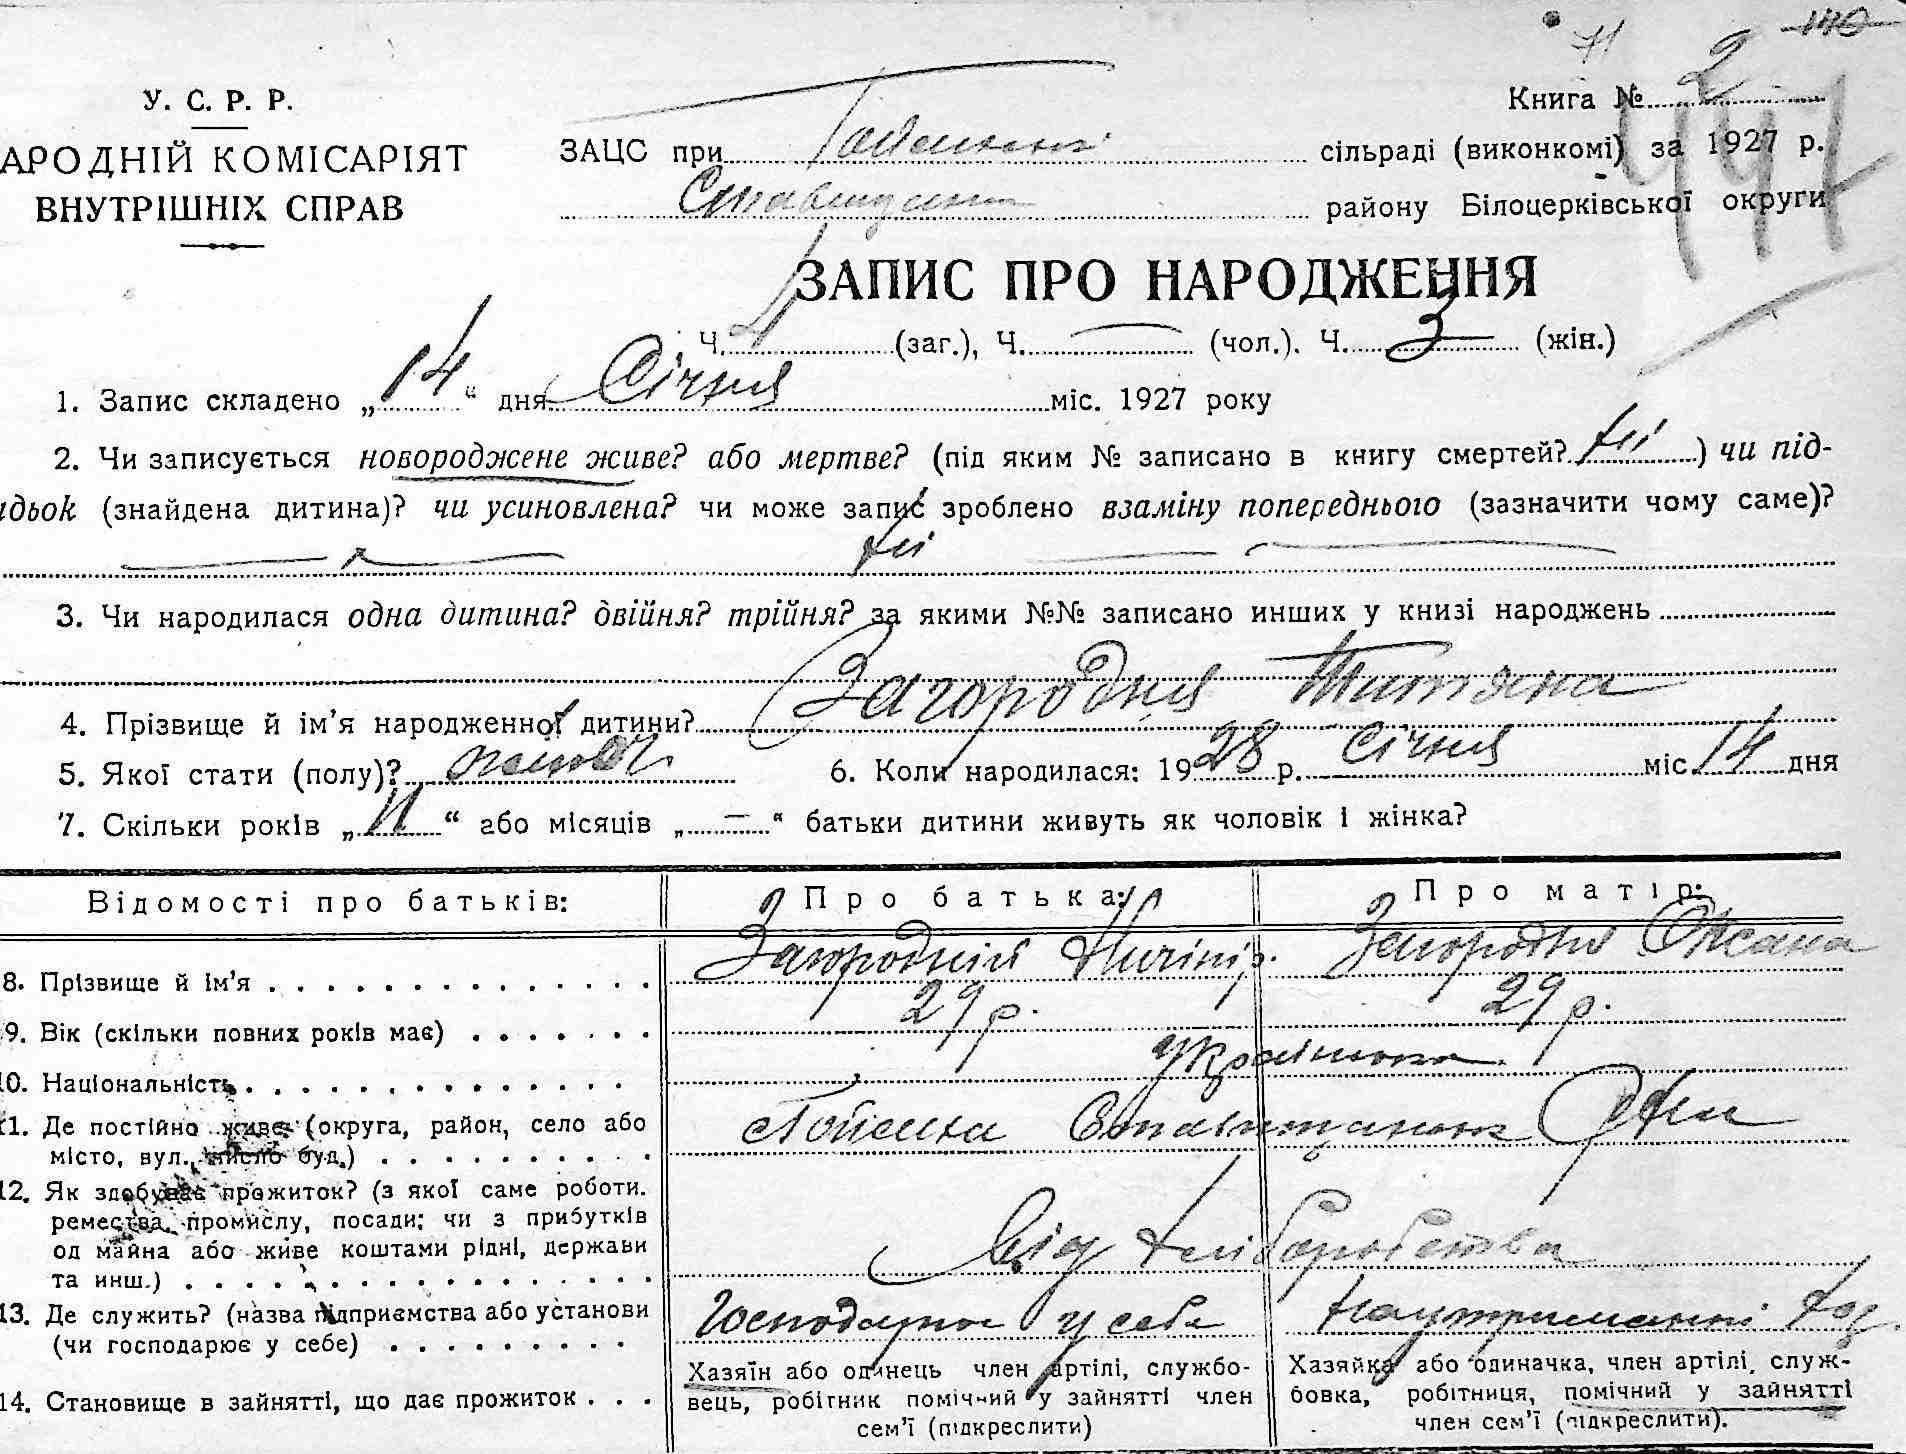 71 140
У. С. Р. Р.
Книга № 2
447
АРОДНІЙ КОМІСАРІЯТ
ВНУТРІШНІХ СПРАВ
ЗАЦС при сільраді (виконкомі) за 1927 р.
району Білоцерківської округи
ЗАПИС ПРО НАРОДЖЕННЯ
Ч. 4 (заг.), Ч. — (чол.). Ч. 3 (жін.)
1. Запис складено „14“ дня Січня міс. 1927 року
2. Чи записується новороджене живе? або мертве? (під яким № записано в книгу смертей? ні) чи під-
идьок (знайдена дитина)? чи усиновлена? чи може запис зроблено взаміну попереднього (зазначити чому саме)?
ні
3. Чи народилася одна дитина? двійня? трійня? за якими №№ записано инших у книзі народжень
4. Прізвище й ім’я народженної дитини? Загородня Титяна
5. Якої стати (полу)? 6. Коли народилася: 1928 р. Січня міс. 14 дня
7. Скільки років „11“ або місяців „–“ батьки дитини живуть як чоловік і жінка?
Відомості про батьків: Про батька: Про матір:
8. Прізвище й ім’я Загородній Ничіпір. Загородня Оксана
9. Вік (скільки повних років має) 29 р. 29 р.
10. Національність українська
11. Де постійно живе (округа, район, село або
місто, вул., число буд.)
12. Як здобуває прожиток? (з якої саме роботи.
ремества, промислу, посади; чи з прибутків
од майна або живе коштами рідні, держави
та инш.) Від хліборобства
13. Де служить? (назва підприємства або установи
(чи господарює у себе) Господарює у себе На утриманні
14. Становище в зайнятті, що дає прожиток
Хазяїн або одинець член артілі, службо-
вець, робігник помічний у зайнятті член
сем’ї (підкреслити)
Хазяйка або одиначка, член артілі, служ-
бовка, робітниця, помічний у зайнятті
член сем’ї (підкреслити).